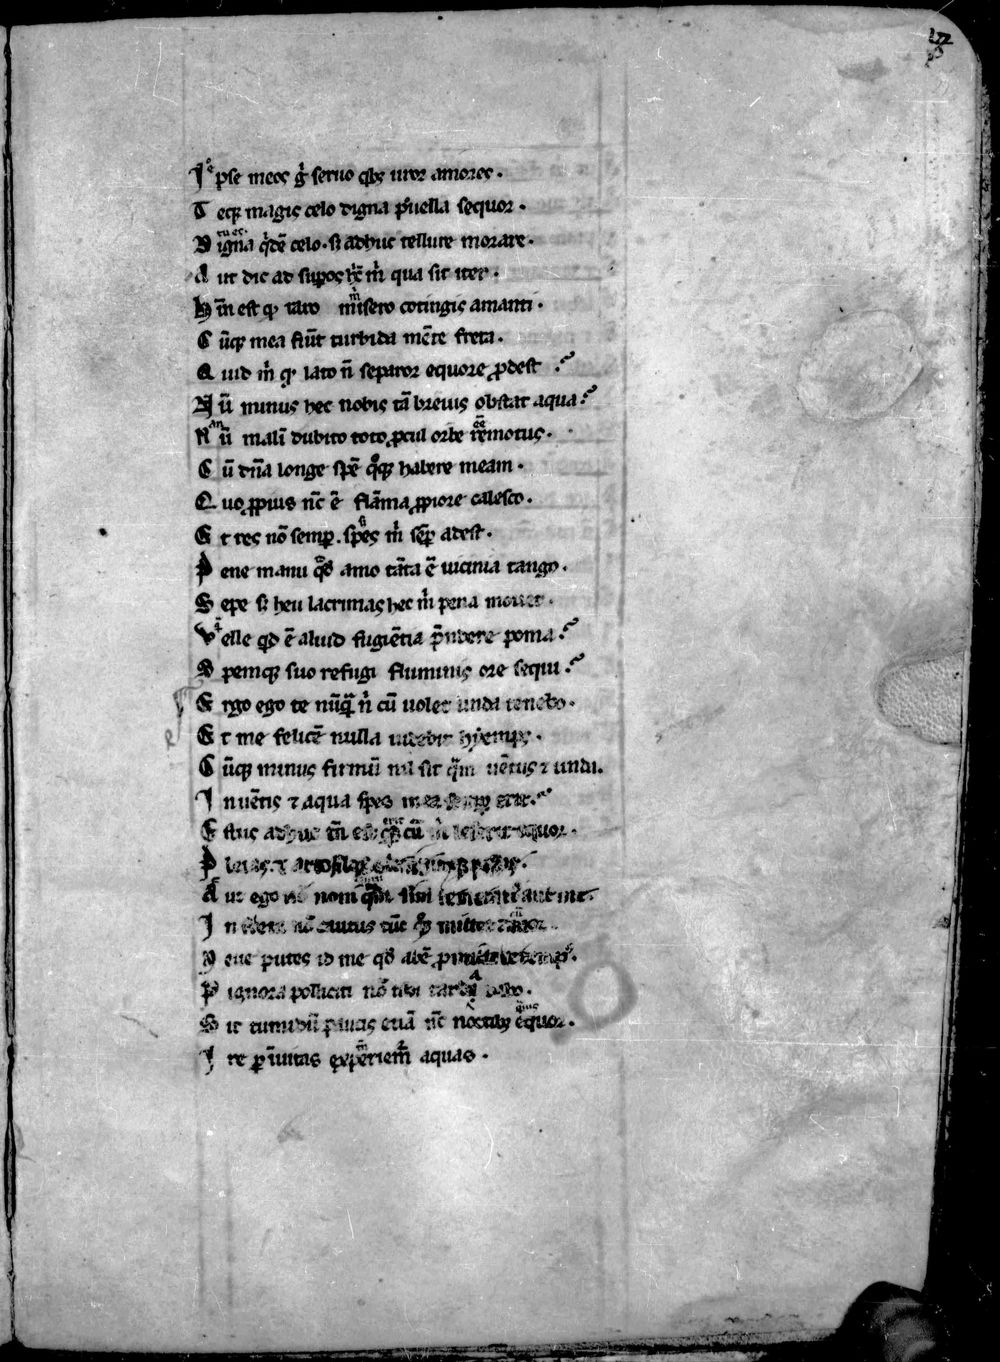 Ipse meos gͥ seruo qͥbꝫ uror amores .
Teqꝫ magis celo digna puella sequor .
Digna qͥdē celo . sꝫ adhuc tellure morare .
Aut dic ad supos hͨ m̊ qua sit iter .
Hīc est qꝫ raro misero cōtingis amanti .
Cūqꝫ mea fiūt turbida mēte freta .
Quid m̊ qꝫ lato nō separor equore ꝓdest ?
Nū minus hec nobis tā breuis obstat aqua ?
Nū malī dubito toto ꝓcul orbe remotus .
Cū dn̄a longe spē qͦqꝫ habere meam .
Quo ꝓpius nc̄ ē flāma ꝓpiore calesco .
Et res nō semꝑ . spes m̊ semꝑ adest .
Pene manu qd̄ amo tāta ē uicinia tango .
Sepe sꝫ heu lacrimas hec m̊ pene mouet .
Velle qͥd ē aliud fugiētia prēdere poma ?
Spemqꝫ suo refugi fluminis ore sequi ?
Ergo ego te nūqͣ nͥ cū uolet unda tenebo .
Et me felicē nulla uidebit hyemps .
Cūqꝫ minus firmū nil sit qͣm uētus ⁊ unda .
In uētis ⁊ aqua spes mea semꝑ erit .
Estus adhuc tn̄ est
Aut ego nō noui qͣm
In freta nō cautus tūc qͦqꝫ mittet amor .
Neue putes id me qd̄ abē ꝓmittere tempꝰ .
Pignora polliciti nō tibi tarda dabo .
Sit tumidū paucis etiā nc̄ noctibꝫ equor .
Ire ꝑ īuitas experiemr̄ aquas .